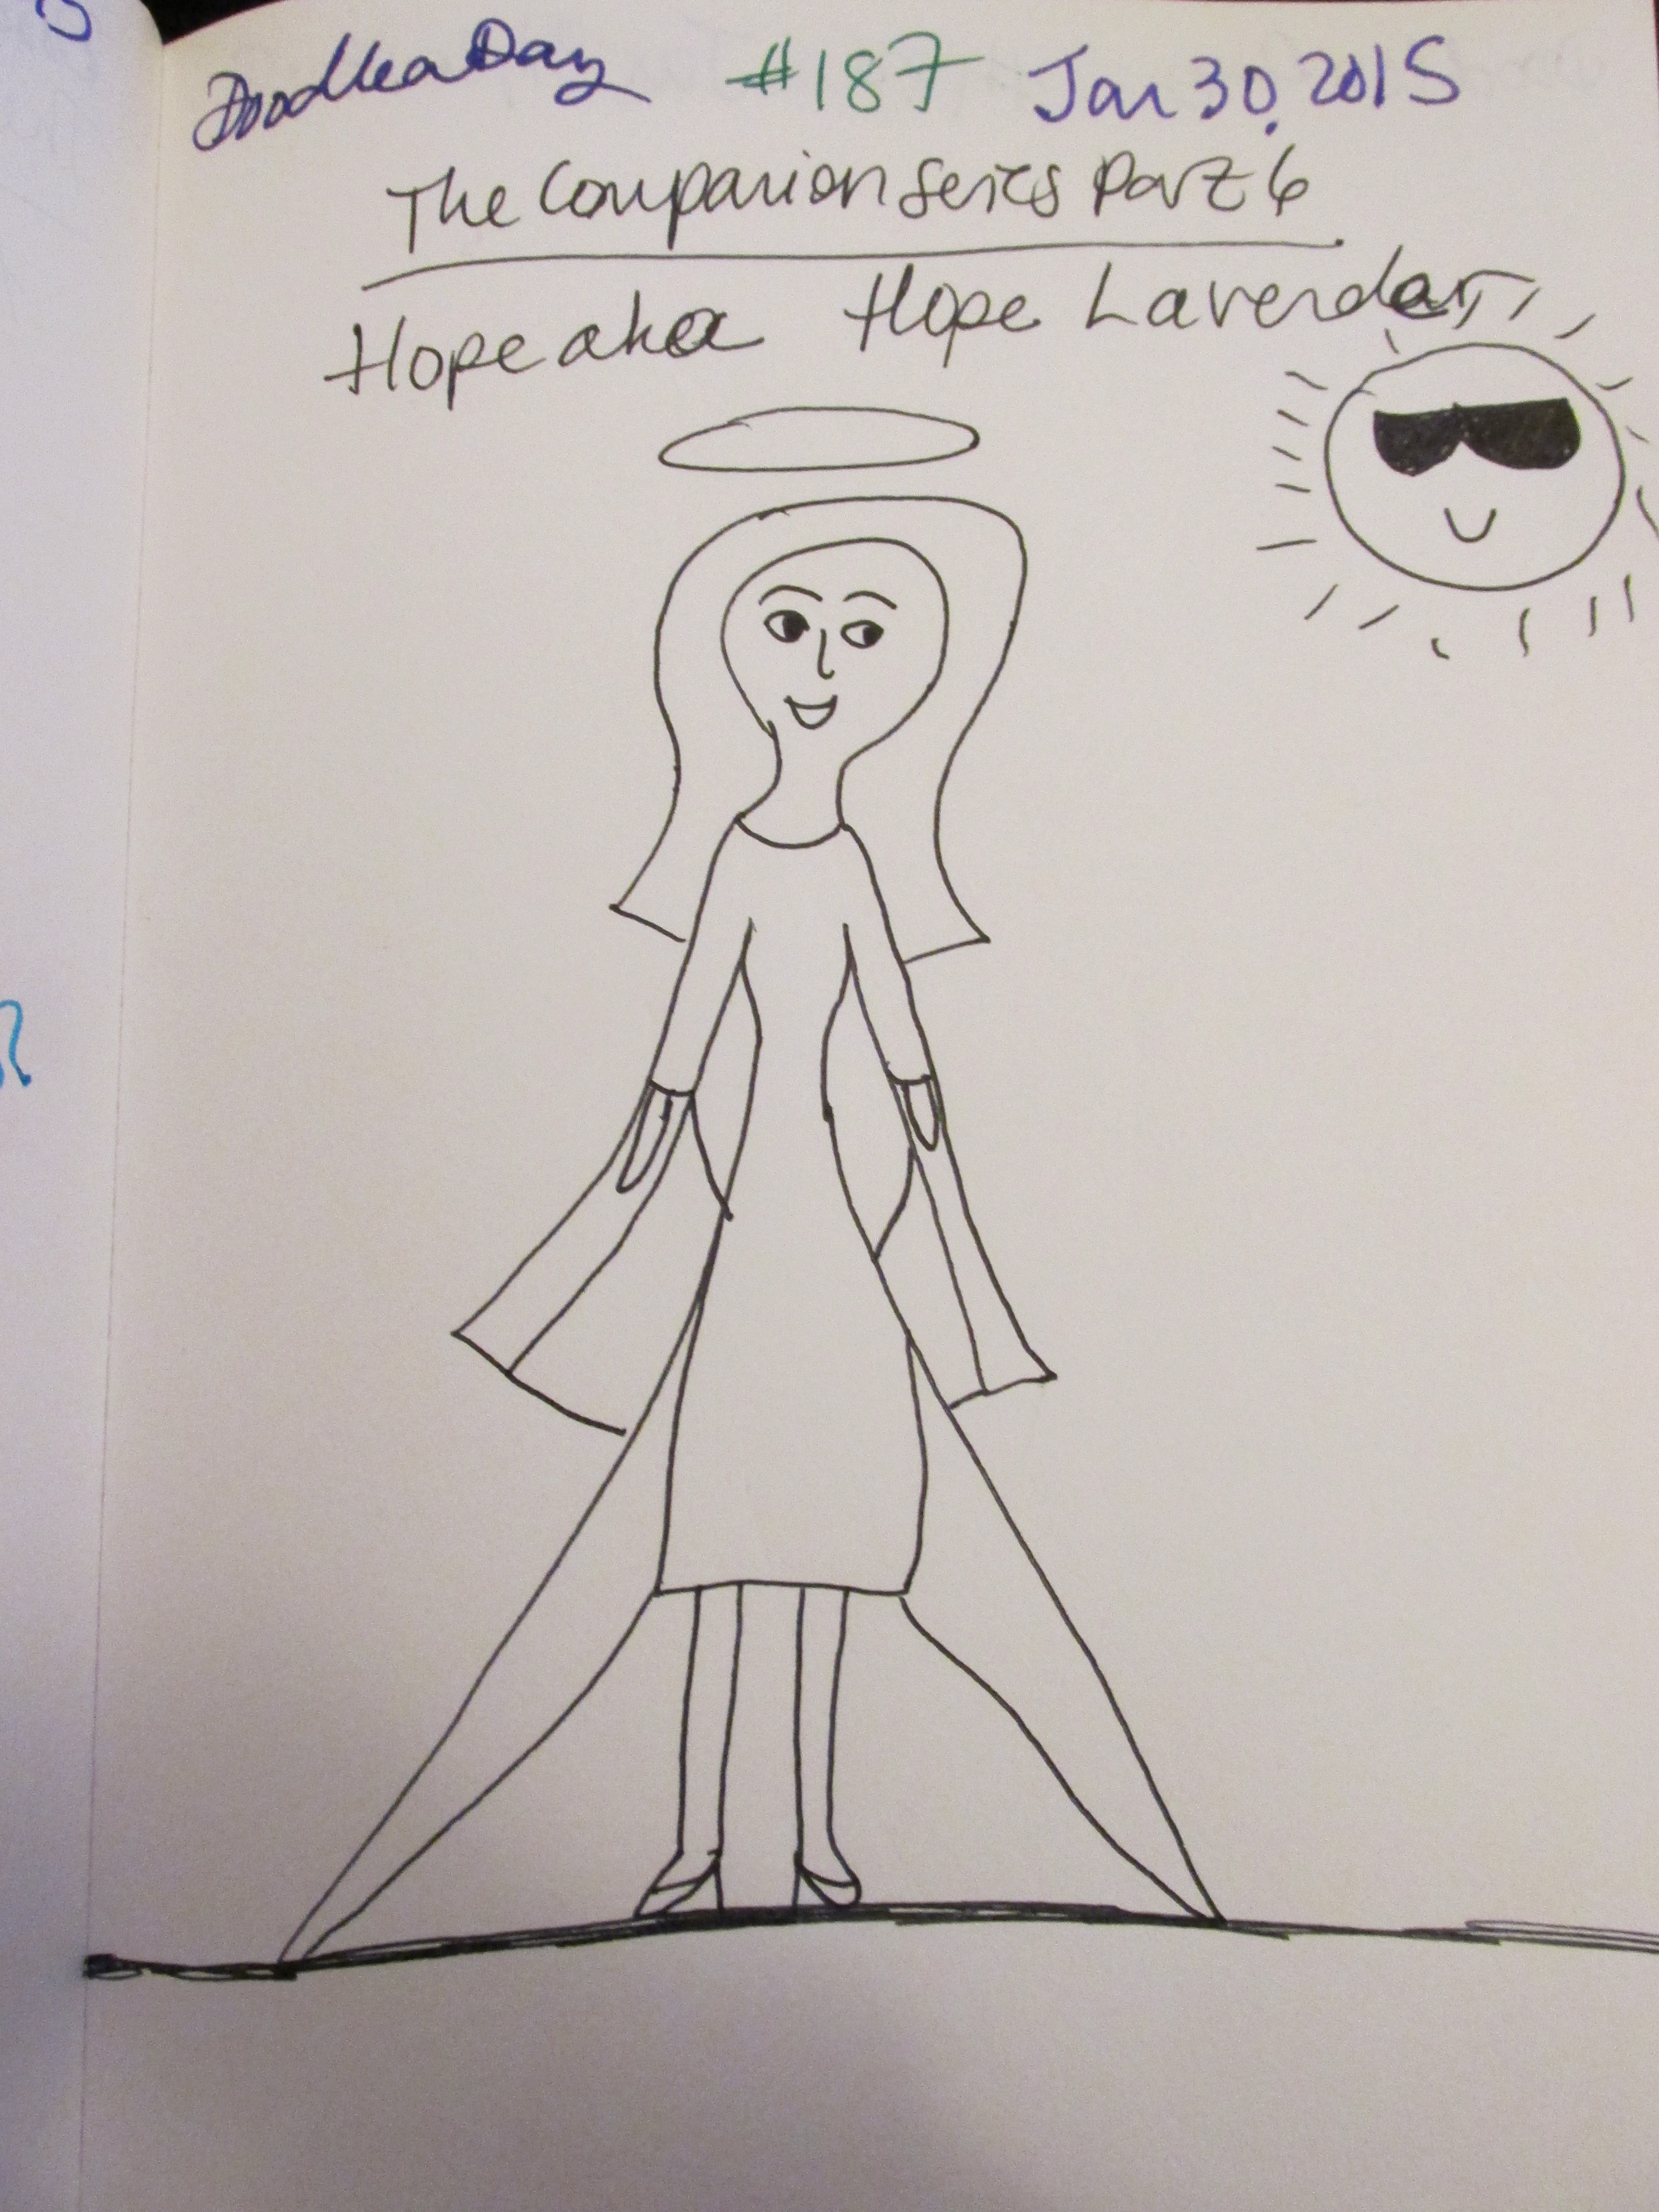 Doodle a Day #187 Jan 30, 2015
The Companion Series Part 6
Hope aka Hope Lavender